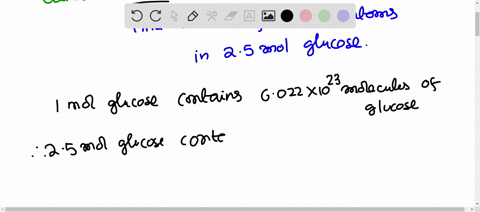 in 2.5 mol glucose.
1 mol glucose contains 6.022×10²³ molecules of
glucose
∴ 2.5 mol glucose conte